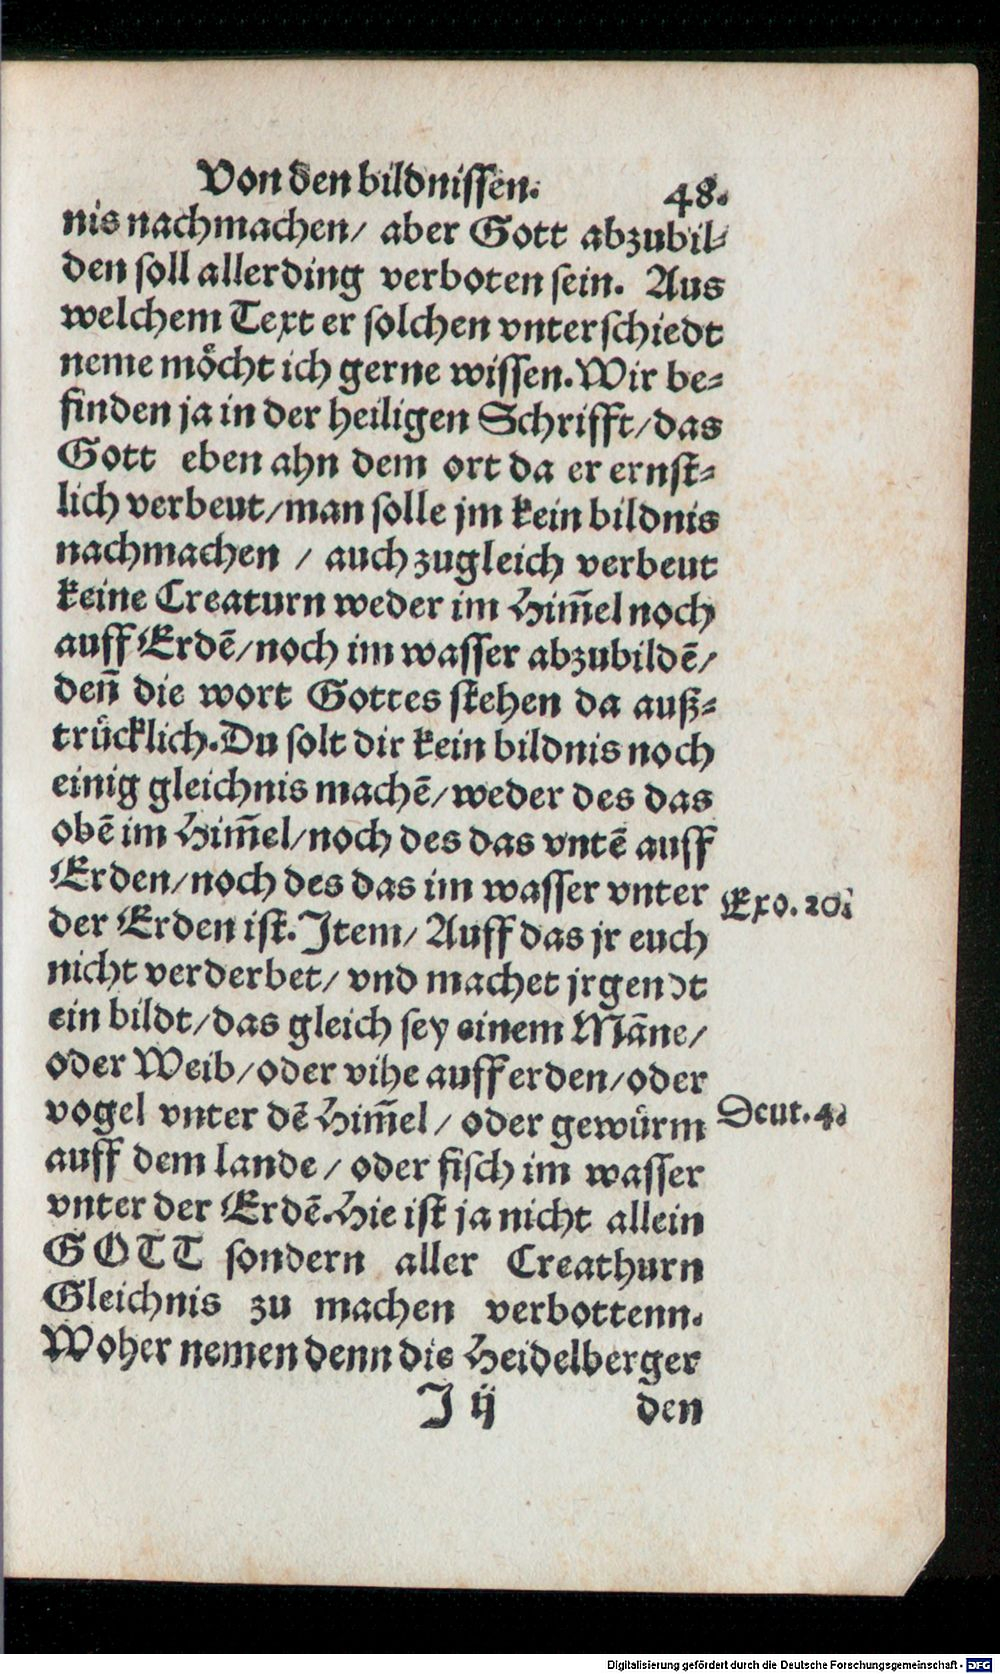 Von den bildnissen. 48.
nis nachmachen/ aber Gott abzubil-
den soll allerding verboten sein. Aus
welchem Text er solchen vnterschiedt
neme möcht ich gerne wissen. Wir be-
finden ja in der heiligen Schrifft/ das
Gott eben ahn dem ort da er ernst-
lich verbeut/ man solle jm kein bildnis
nachmachen / auch zugleich verbeut
keine Creaturn weder im Him̄el noch
auff Erdē/ noch im wasser abzubildē/
den̄ die wort Gottes stehen da auß-
trücklich. Du solt dir kein bildnis noch
einig gleichnis machē/ weder des das
obē im Him̄el/ noch des das vntē auff
Erden/ noch des das im wasser vnter
Exo. 20.
der Erden ist. Item/ Auff das jr euch
nicht verderbet/ vnd machet jrgendt
ein bildt/ das gleich sey einem Māne/
oder Weib/ oder vihe auff erden/ oder
vogel vnter dē Him̄el / oder gewürm
Deut. 4.
auff dem lande / oder fisch im wasser
vnter der Erdē. Hie ist ja nicht allein
GOTT sondern aller Creathurn
Gleichnis zu machen verbottenn.
Woher nemen denn die Heidelberger
J ij den
Digitalisierung gefördert durch die Deutsche Forschungsgemeinschaft - DFG